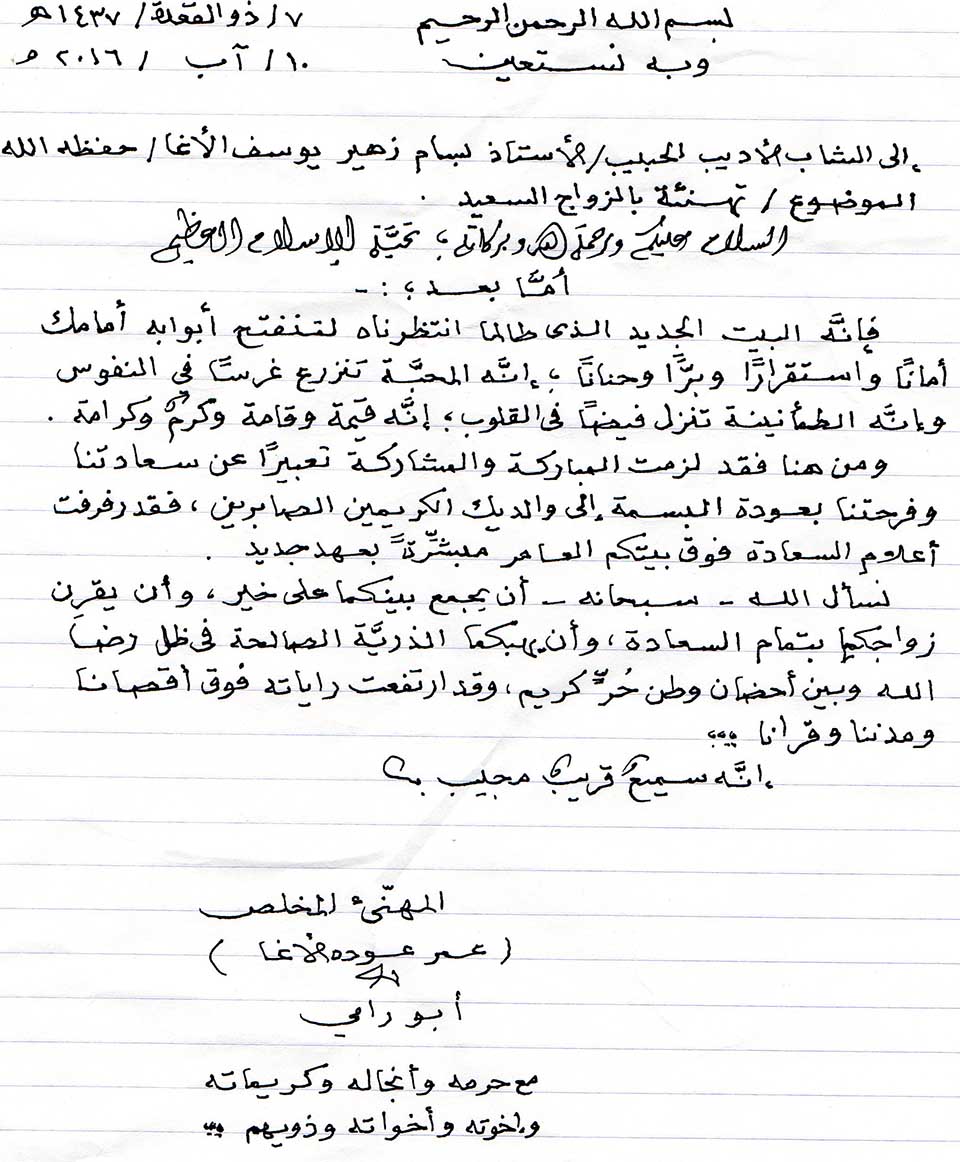 بسم الله الرحمن الرحيم ٧/ ذو القعدة/ ١٤٣٧هـ
وبه نستعين ١٠/ آب / ٢٠١٦ م
إلى الشاب الأديب الحبيب/الأستاذ بسام زهير يوسف الأغا/ حفظه الله
الموضوع / تهنئة بالزواج السعيد .
السلام عليكم ورحمة الله وبركاته ؛ تحيَّة الإسلام العظيم
أمَّا بعد ؛ : -
فإنَّه البيت الجديد الذى طالما انتظرناه لتنفتح أبوابه أمامك
أمانًا واستقرارًا وبرًّا وحنانًا ؛ إنَّه المحبَّة تنزرع غرسًا في النفوس
وإنَّه الطمأنينة تنزل فيضًا فى القلوب ؛ إنَّه قيمة وقامة وكرمٌ وكرامة .
ومن هنا فقد لزمت المباركة والمشاركة تعبيرًا عن سعادتنا
وفرحتنا بعودة البسمة إلى والديك الكريمين الصابرين ، فقد رفرفت
أعلام السعادة فوق بيتكم العامر مبشِّرةً بعهد جديد .
نسأل الله - سبحانه - أن يجمع بينكما على خير ، وأن يقرن
زواجكما بتمام السعادة ، وأن يهبكما الذريَّة الصالحة فى ظل رضا
الله وبين أحضان وطن حُرٍّ كريم ، وقد ارتفعت راياته فوق أقصانا
ومدننا وقرانا ،،،
إنَّه سميعٌ قريبٌ مجيب
المهنّئ المخلص
( عمر عوده الأغا )
أبو رامي
مع حرمه وأنجاله وكريماته
وإخوته وأخواته وذويهم ،،،